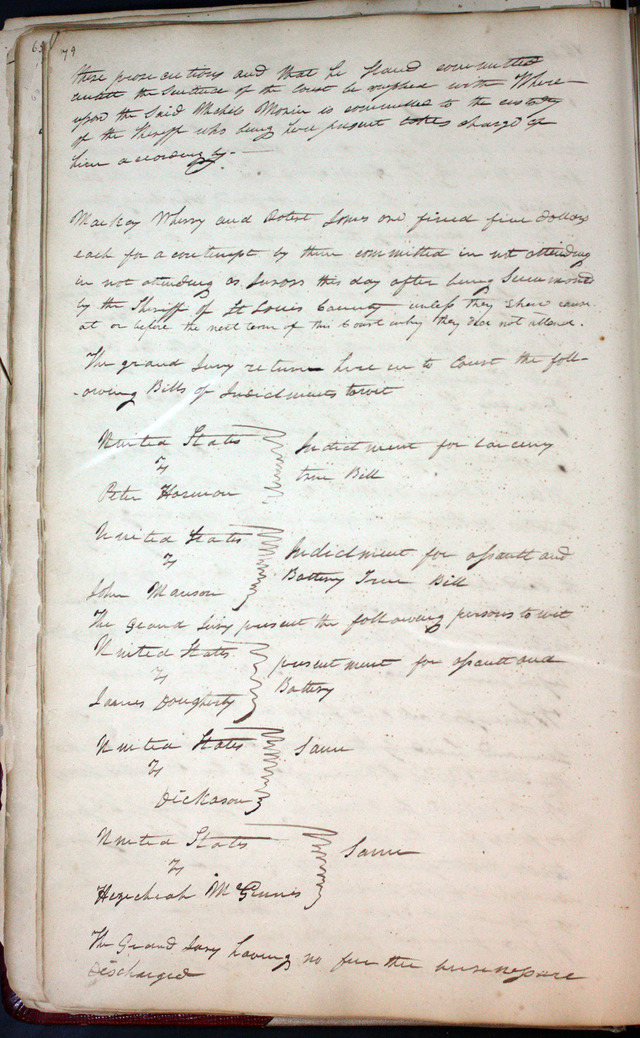 79
these prosecutions and that he stand committed
untill the Sentence of the Court be complied with Where-
upon the Said Michel Morin is committed to the custody
of the Sheriff who being here present takes charge of
him accordingly.—
Mackay Wherry and Jones are fined five Dollars
each for a contempt by them committed in not attending
in not attending as Jurors this day after being Summoned
by the Sheriff of St Louis County unless they shew cause
at or before the next term of this Court why they did not attend.
The grand Jury return here in to Court the foll-
-owing Bills of Indictments towit
United States
vs
Peter Harmon
Indictment for Larceny
true Bill
United States
vs
John Manson
Indictment for assault and
Battery True Bill
The Grand Jury present the following persons to wit
United States
vs
James Dougherty
presentment for assault and
Battery
United States
vs
Dickason
Same
United States
vs
Hezechiah McGinnis
Same
The Grand Jury having no further business are
discharged